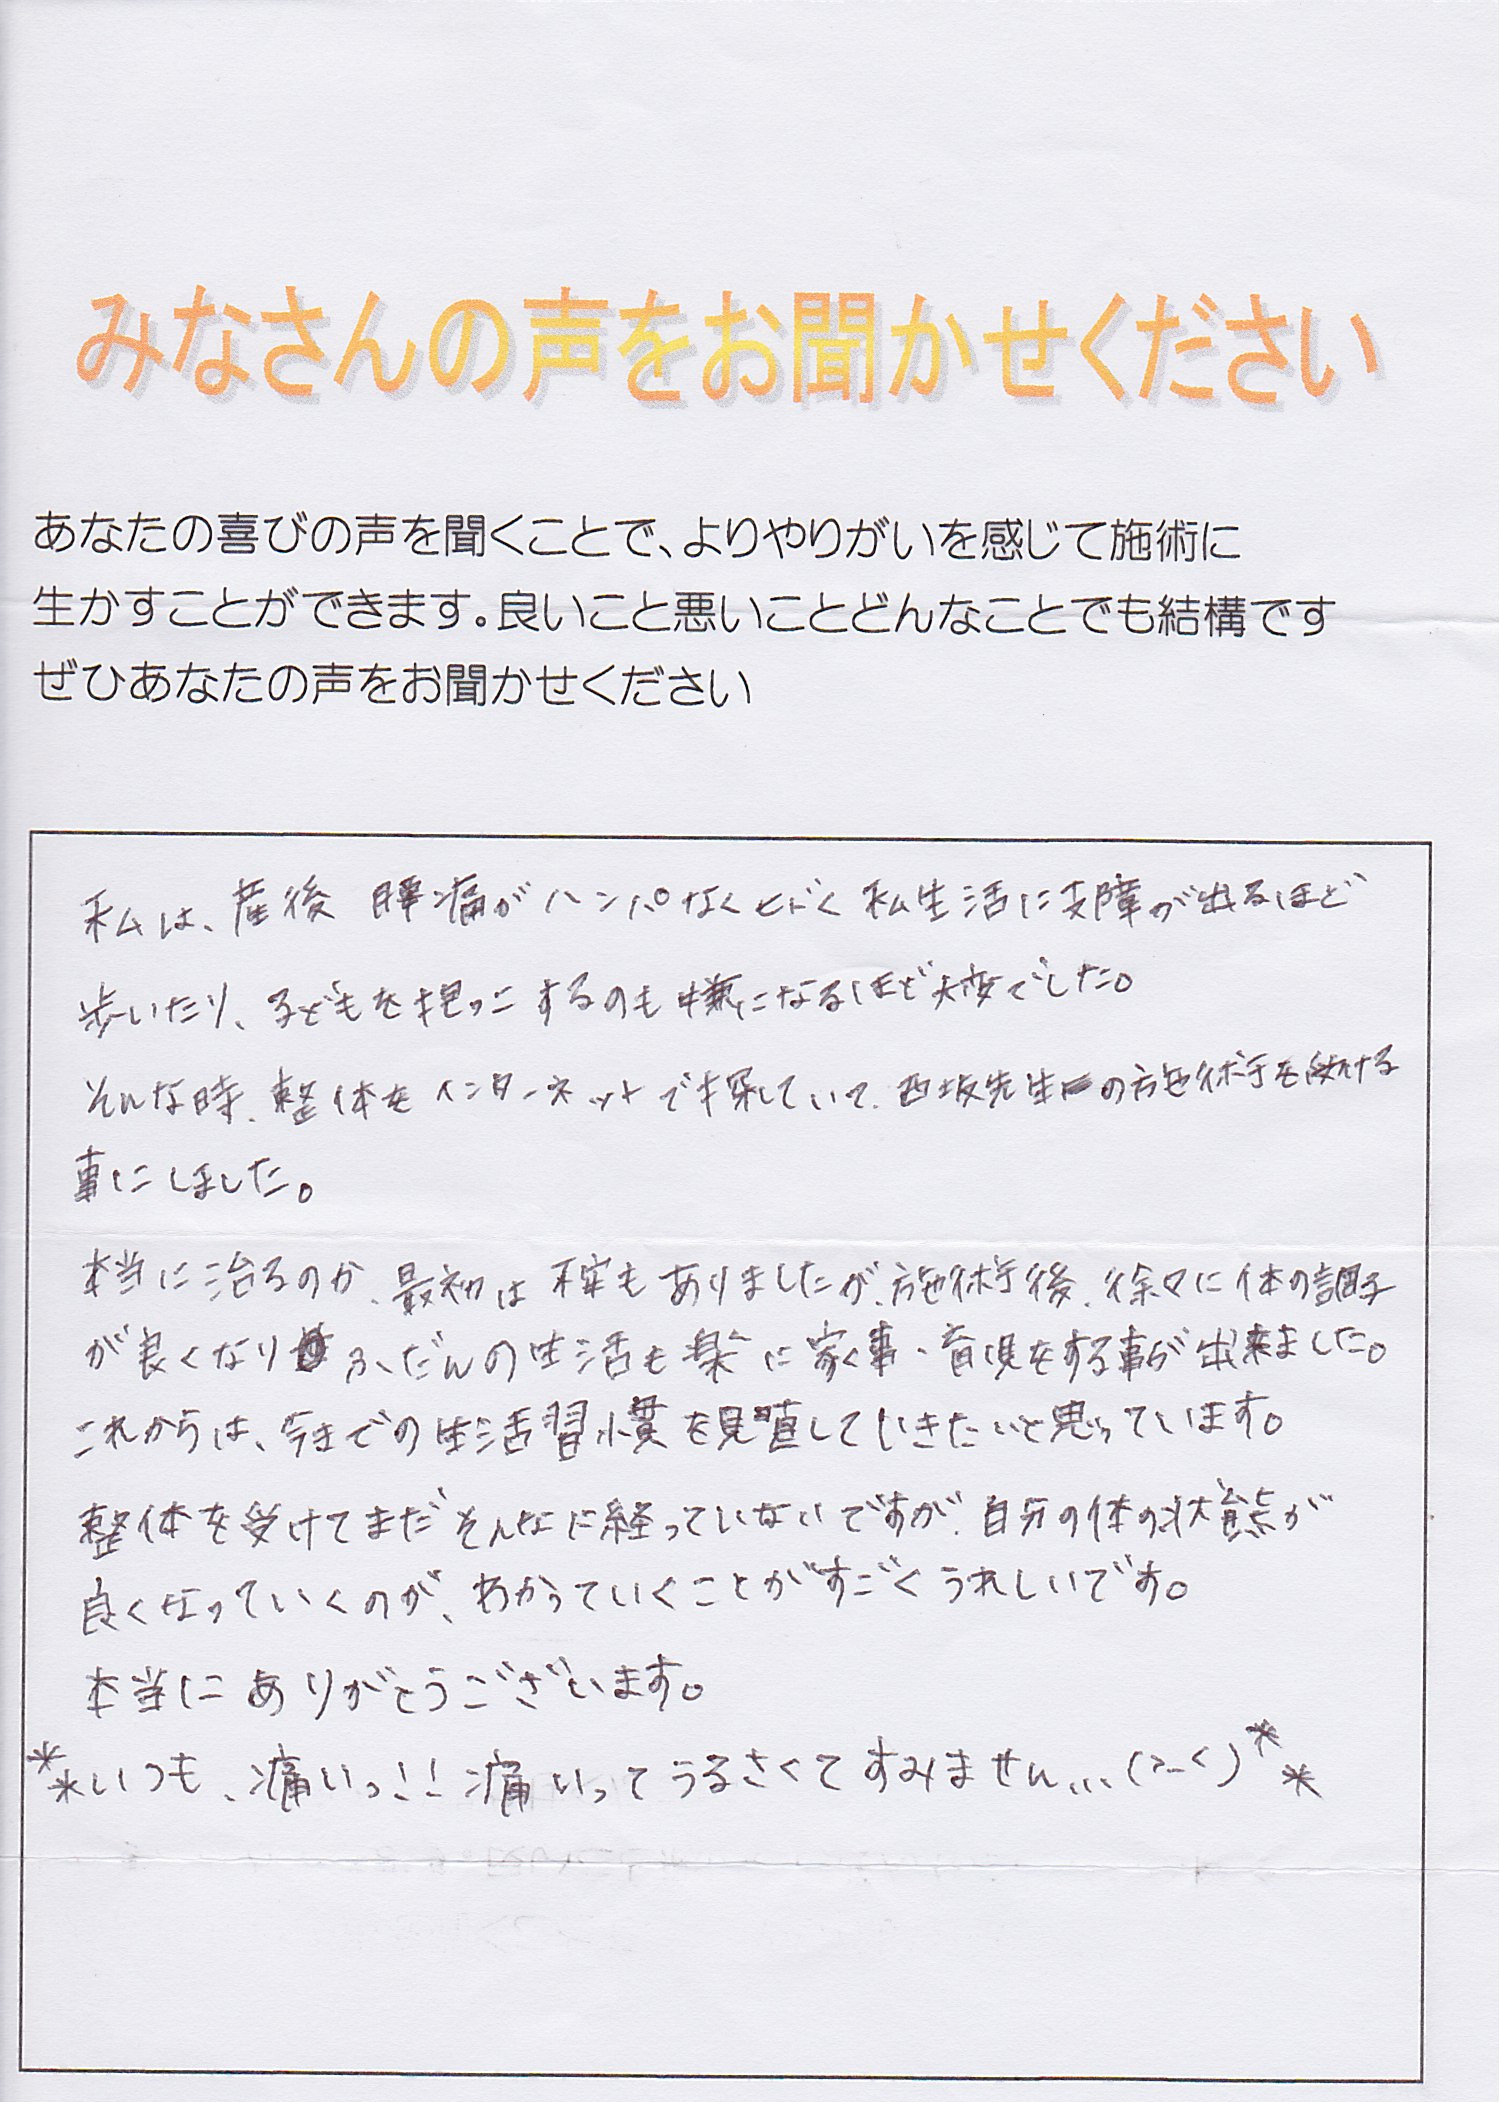 みなさんの声をお聞かせください
あなたの喜びの声を聞くことで、よりやりがいを感じて施術に
生かすことができます。良いこと悪いことどんなことでも結構です
ぜひあなたの声をお聞かせください
私は、産後 腰痛がハンパなくヒドく私生活に支障が出るほど
歩いたり、子どもを抱っこするのも嫌になるほど大変でした。
そんな時、整体をインターネットで探していて、西坂先生の施術を受ける
事にしました。
本当に治るのか、最初は不安もありましたが、施術後、徐々に体の調子
が良くなり ふだんの生活も楽に家事・育児をする事が出来ました。
これからは、今までの生活習慣を見直していきたいと思っています。
整体を受けてまだそんなに経っていないですが、自分の体の状態が
良くなっていくのが、わかっていくことがすごくうれしいです。
本当にありがとうございます。
**いつも、痛いっ!!痛いってうるさくてすみません...(>-<)**